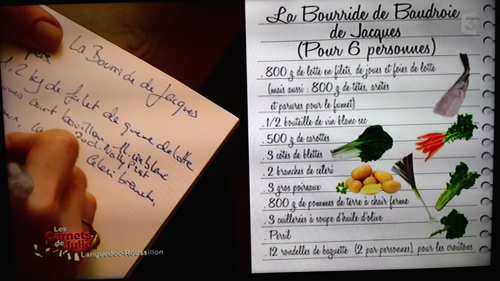 La Bourride de Jacques
1,2 kg de filet de queue de lotte
court bouillon vin blanc
Céleri branche,
Les
Carnets
de Julie
Languedoc-Roussillon
3
La Bourride de Baudroie
de Jacques
(Pour 6 personnes)
. 800 g de lotte en filets, de joues et foies de lotte
(mais aussi : 800 g de têtes, arêtes
et parures pour le fumet)
. 1/2 bouteille de vin blanc sec
. 500 g de carottes
. 3 côtes de blettes
. 2 branches de céleri
. 3 gros poireaux
. 800 g de pommes de terre à chair ferme
. 3 cuillerées à soupe d'huile d'olive
. Persil
. 12 rondelles de baguette (2 par personnes), pour les croûtons